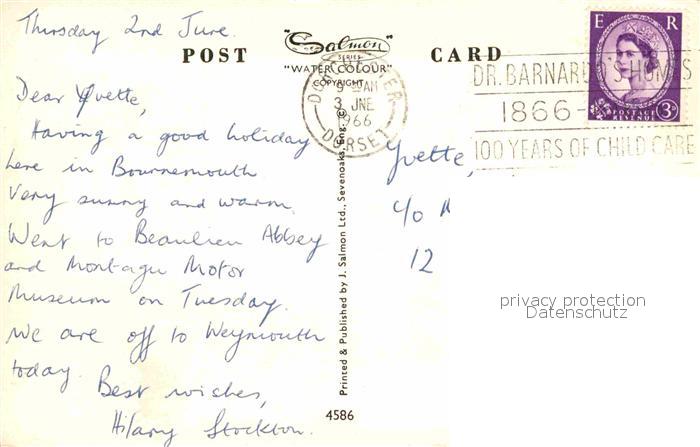 Thursday 2nd June.
POST CARD
Salmon
SERIES
"WATER COLOUR"
COPYRIGHT
DORCHESTER
3 JNE
1966
DORSET
DR. BARNARDO'S HOMES
1866-
100 YEARS OF CHILD CARE
E R
POSTAGE
REVENUE
3D
Dear Yvette,
Having a good holiday
here in Bournemouth
Very sunny and warm.
Went to Beaulieu Abbey
and Montagu Motor
Museum on Tuesday.
We are off to Weymouth
today.
Best wishes,
Hilary Stockton.
Printed & Published by J. Salmon Ltd., Sevenoaks, Eng. ©
4586
Yvette,
c/o
12
privacy protection
Datenschutz